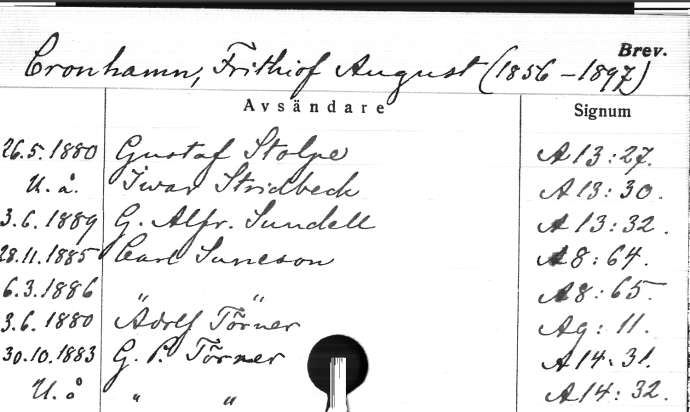 Brev.
Cronhamn, Frithiof August (1856-1897)
Avsändare Signum
26.5.1880 Gustaf Stolpe A13:27.
U.å. Iwar Stridbeck A13:30.
3.6.1889 G. Alfr. Sundell A13:32.
28.11.1885 Carl Suneson A8:64.
6.3.1886 " " A8:65.
3.6.1880 Adolf Törner A9:11.
30.10.1883 G. P. Törner A14:31.
U.å " " A14:32.